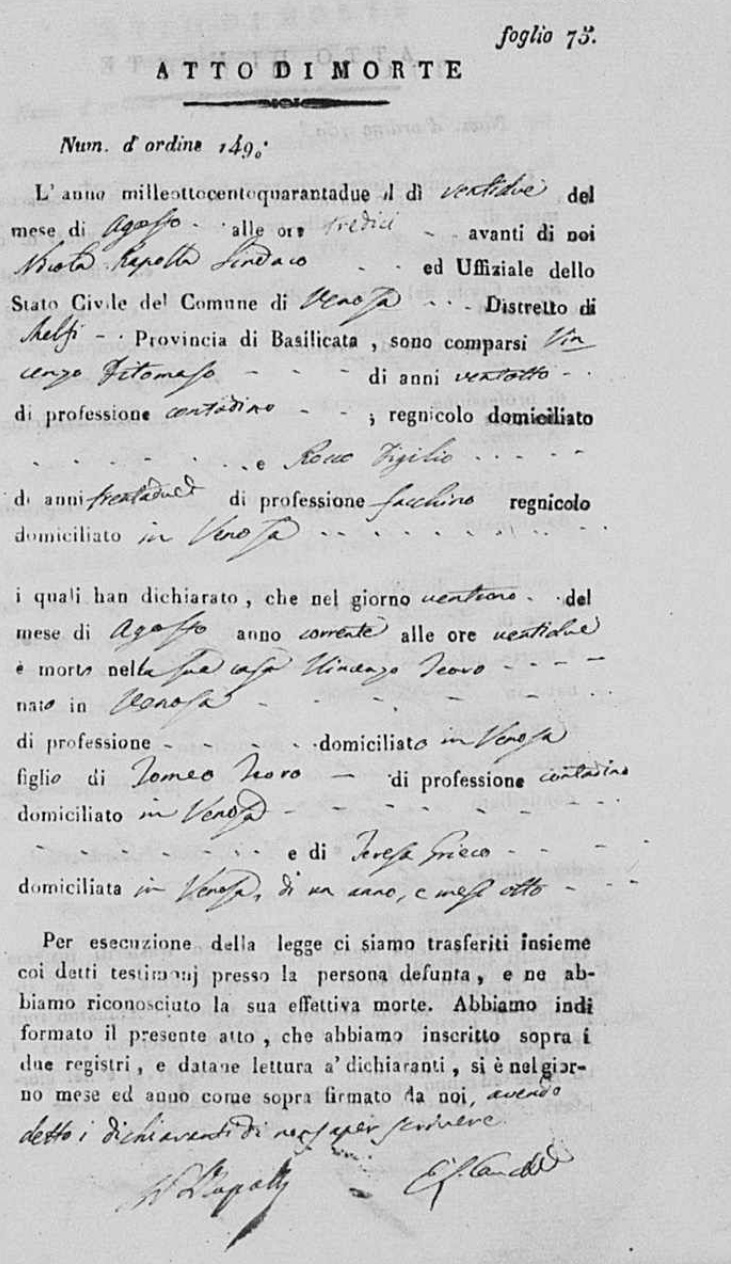 foglio 75.
ATTO DI MORTE
Num. d'ordine 149.
L'anno milleottocentoquarantadue il dì ventidue del
mese di Agosto - alle ore tredici - - avanti di noi
Nicola Rapolla Sindaco - - ed Uffiziale dello
Stato Civile del Comune di Venosa - - - Distretto di
Melfi - - Provincia di Basilicata, sono comparsi Vin
cenzo Ditomaso - - - - di anni ventotto - -
di professione contadino - - ; regnicolo domiciliato
- - - - - - - - e Rocco - - - - -
di anni trentadue di professione facchino regnicolo
domiciliato in Venosa - - - - - - - -
i quali han dichiarato, che nel giorno ventuno - - del
mese di Agosto anno corrente alle ore ventidue
è morto nella sua casa Vincenzo Teoro - - - -
nato in Venosa - - - - - - - -
di professione - - - - domiciliato in Venosa
figlio di Tomeo Teoro - di professione contadino
domiciliato in Venosa - - - - - - -
- - - - - - - - e di Teresa Grieco - - - -
domiciliata in Venosa, di un anno, e mesi otto - - -
Per esecuzione della legge ci siamo trasferiti insieme
coi detti testimonj presso la persona defunta, e ne ab-
biamo riconosciuto la sua effettiva morte. Abbiamo indi
formato il presente atto, che abbiamo inscritto sopra i
due registri, e datane lettura a' dichiaranti, si è nel gior-
no mese ed anno come sopra firmato da noi, avendo
detto i dichiaranti di non saper scrivere
N Rapolla